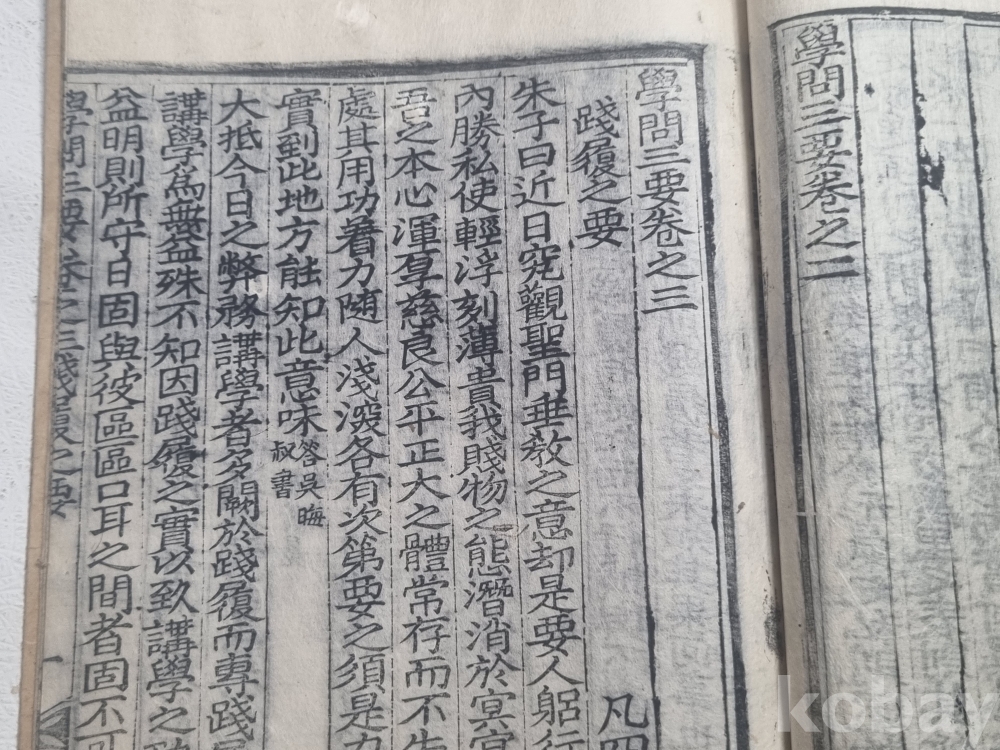 學問三要卷之二
學問三要卷之三
踐履之要 凡四
朱子曰近日究觀聖門垂教之意却是要人躬行
內勝私使輕浮刻薄貴我賤物之態潛消於冥冥
吾之本心渾厚慈良公平正大之體常存而不失
處其用功着力随人淺深各有次第要之須是力
實到此地方能知此意味答吳晦
叔書
大抵今日之弊務講學者多闕於踐履而專踐履
講學爲無益殊不知因踐履之實以致講學之
益明則所守日固與彼區區口耳之間者固不可
學問三要卷之三踐履之要 一
kobay